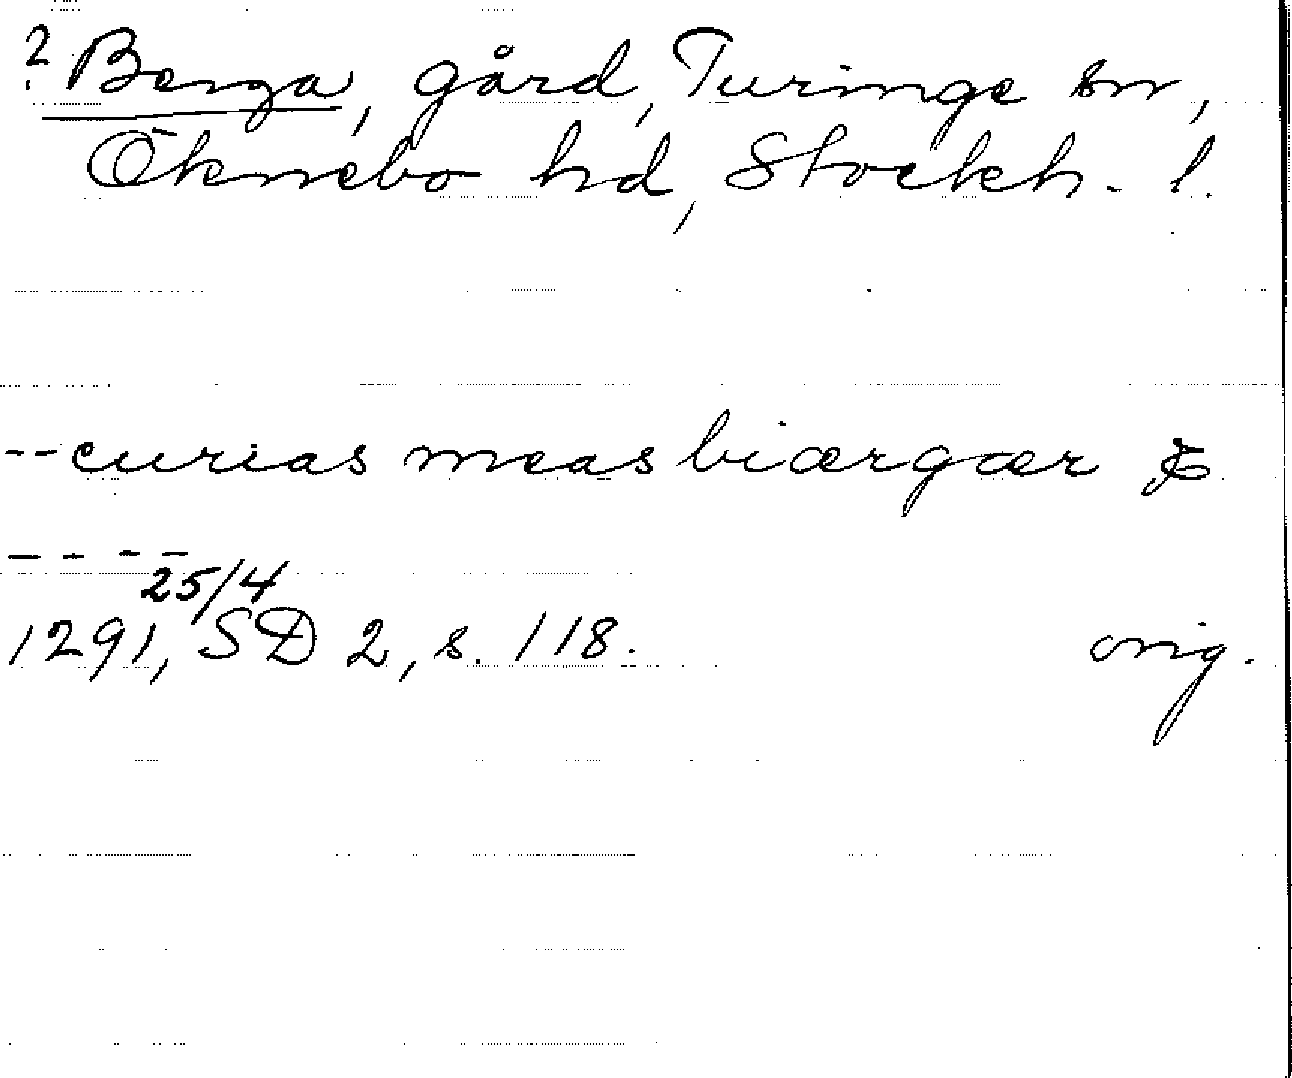 ? Berga, gård, Turinge sn,
Öknebo hd, Stockh. l.
-- curias meas biærgær &
— - - -
25/4
1291, SD 2, s. 118. orig.